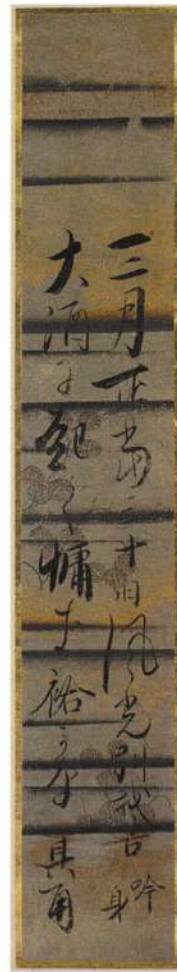 三月正當三十日風光別我苦吟身
大酒に起て慵き袷かな 其角